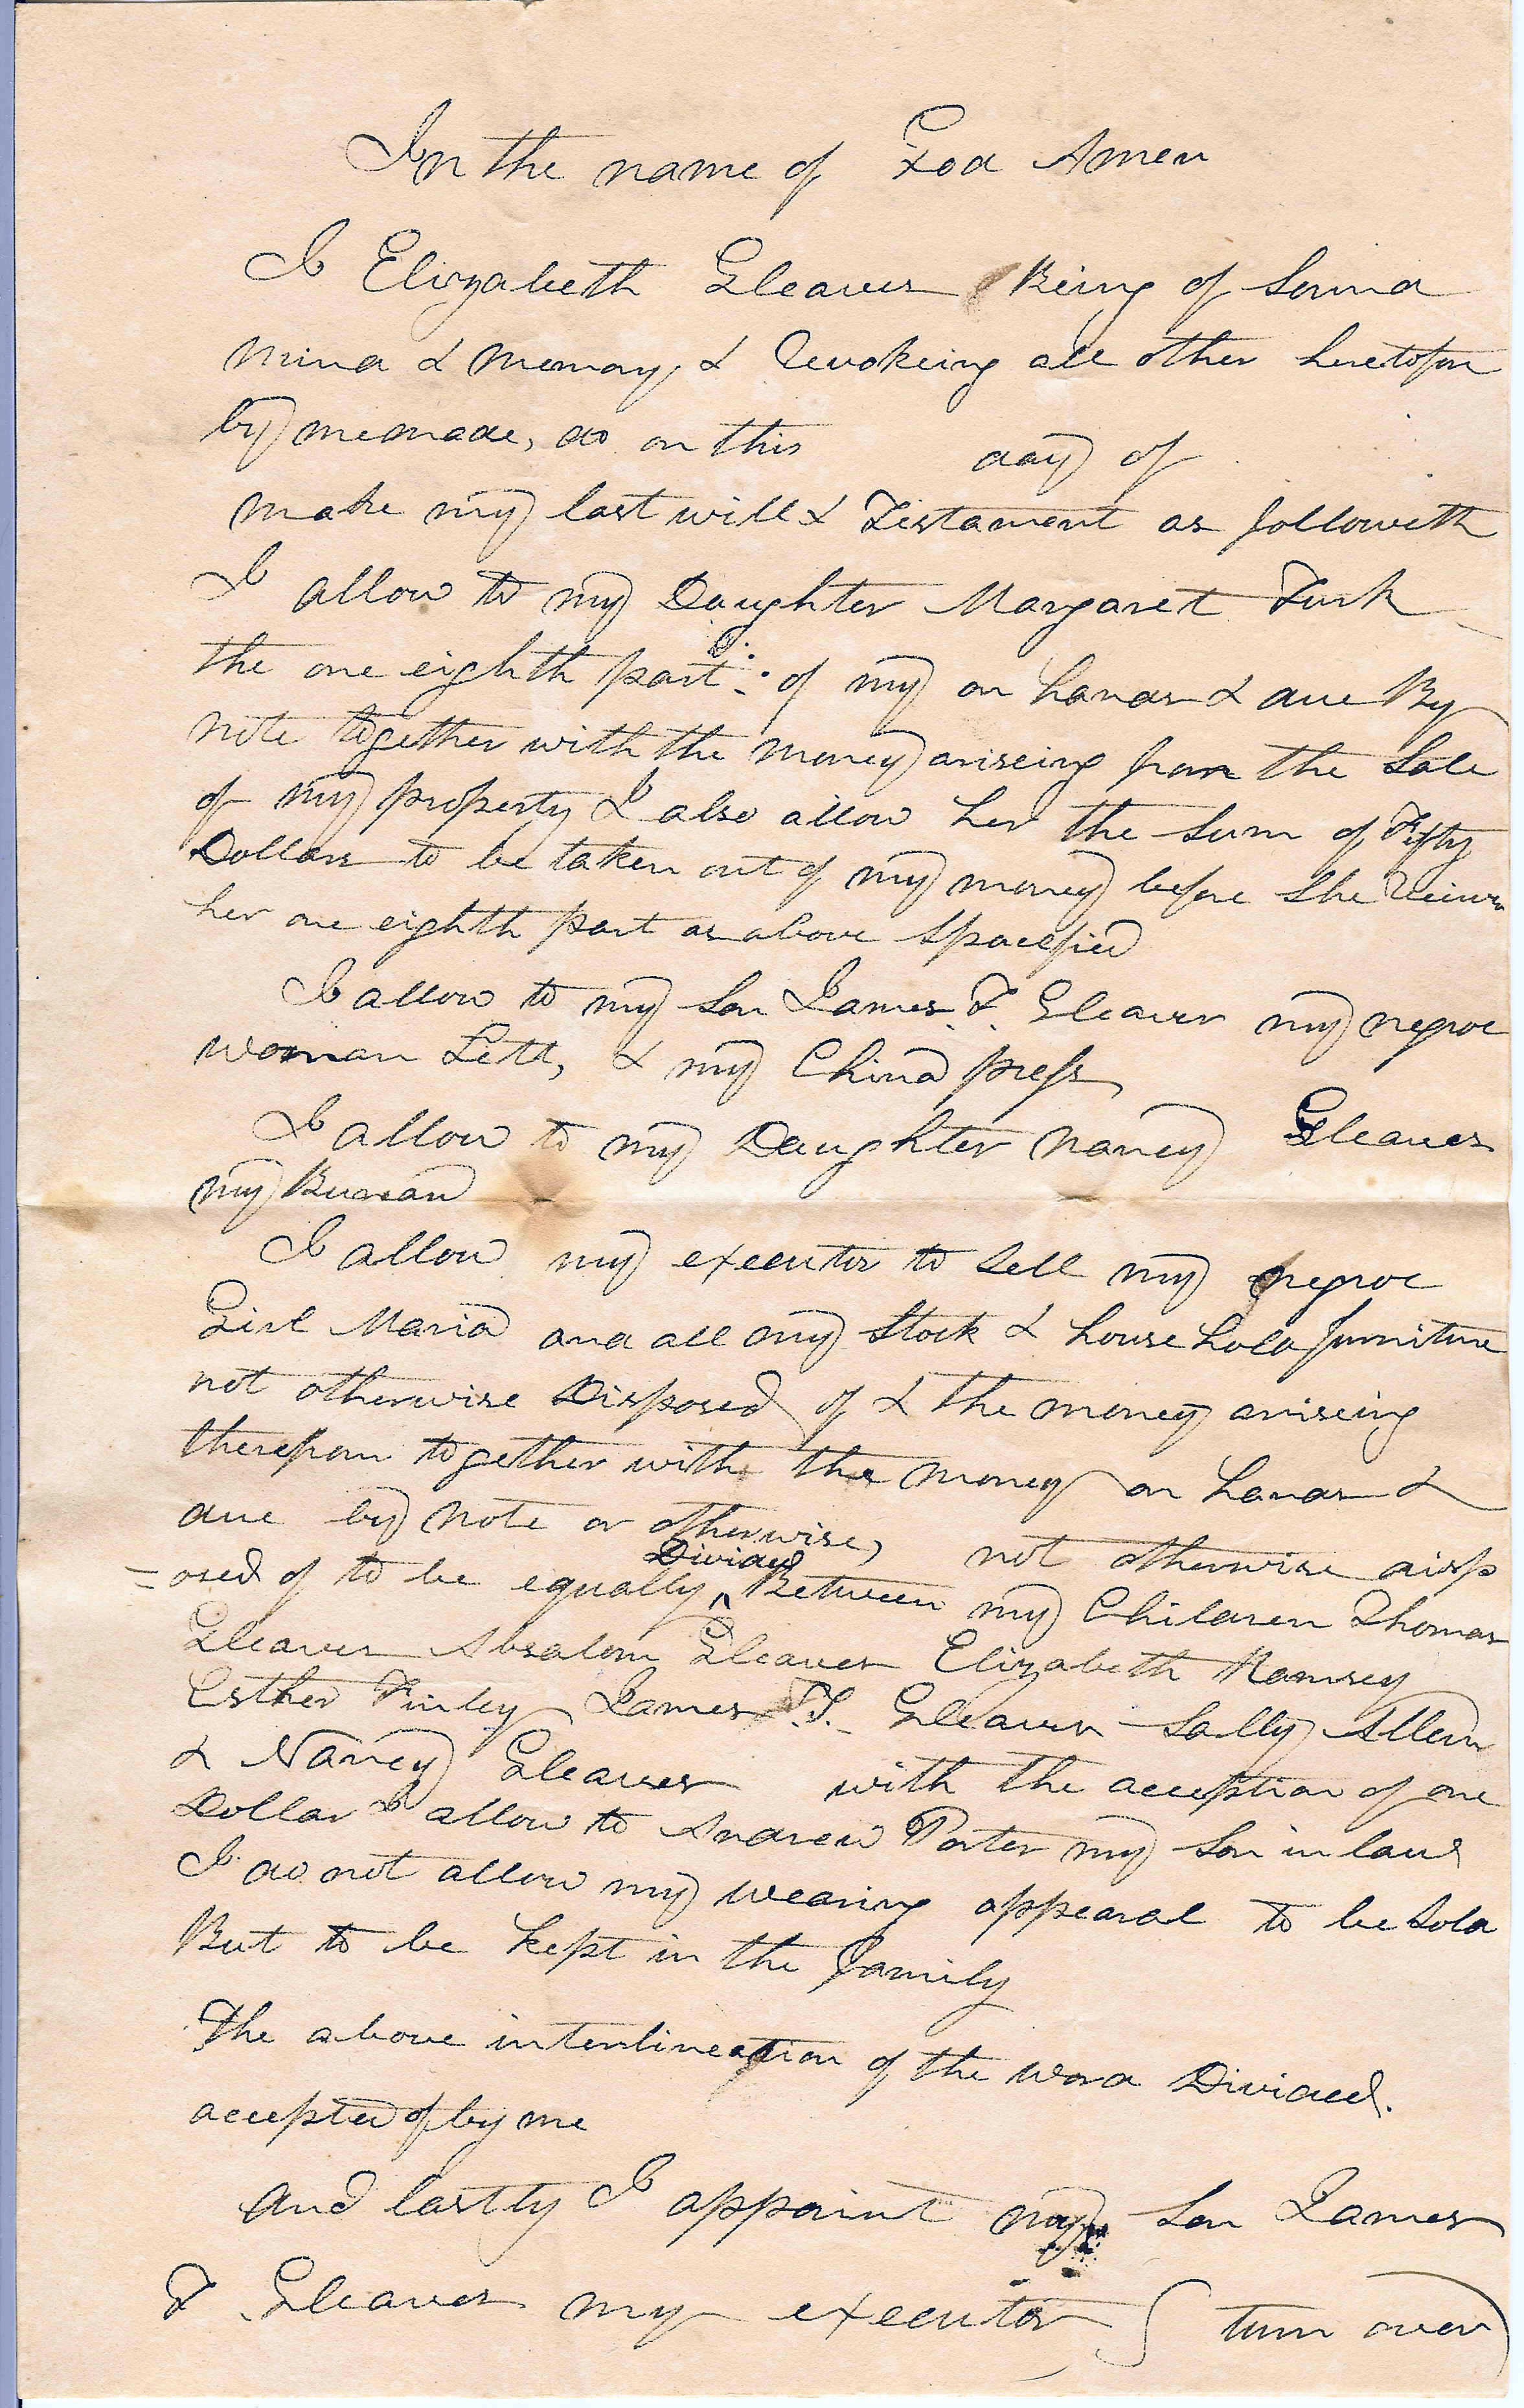 In the name of God Amen
I Elizabeth Gleaves Being of Sound
mind & memory & Revokeing all other heretofore
by me made, do on this day of
make my last will & Testament as followeth
I allow to my Daughter Margaret Turk
the one eighth part of my on hands & due By
note together with the money ariseing from the Sale
of my property I also allow her the Sum of Fifty
Dollars to be taken out of my money before She Receives
her one eighth part as above Spacefied
I allow to my Son James T. Gleaves my negroe
woman Lett, & my China press
I allow to my Daughter Nancy Gleaves
my Bureau
I allow my executor to Sell my negroe
Girl Maria and all my Stock & house hold furniture
not otherwise Disposed of & the money ariseing
therefrom together with the money on hands &
due by note or otherwise, not otherwise disp
=osed of to be equally ^ Divided Between my Children Thomas
Gleaves Absalom Gleaves Elizabeth Ramsey
Esther Finley James T. Gleaves Sally Allen
& Nancy Gleaves with the acception of one
Dollar I allow to Andrew Porter my Son in law
I do not allow my wearing appearal to be Sold
But to be kept in the family
The above interlineation of the word Divided.
accepted of by me
And lastly I appoint my Son James
T. Gleaves my executor turn over